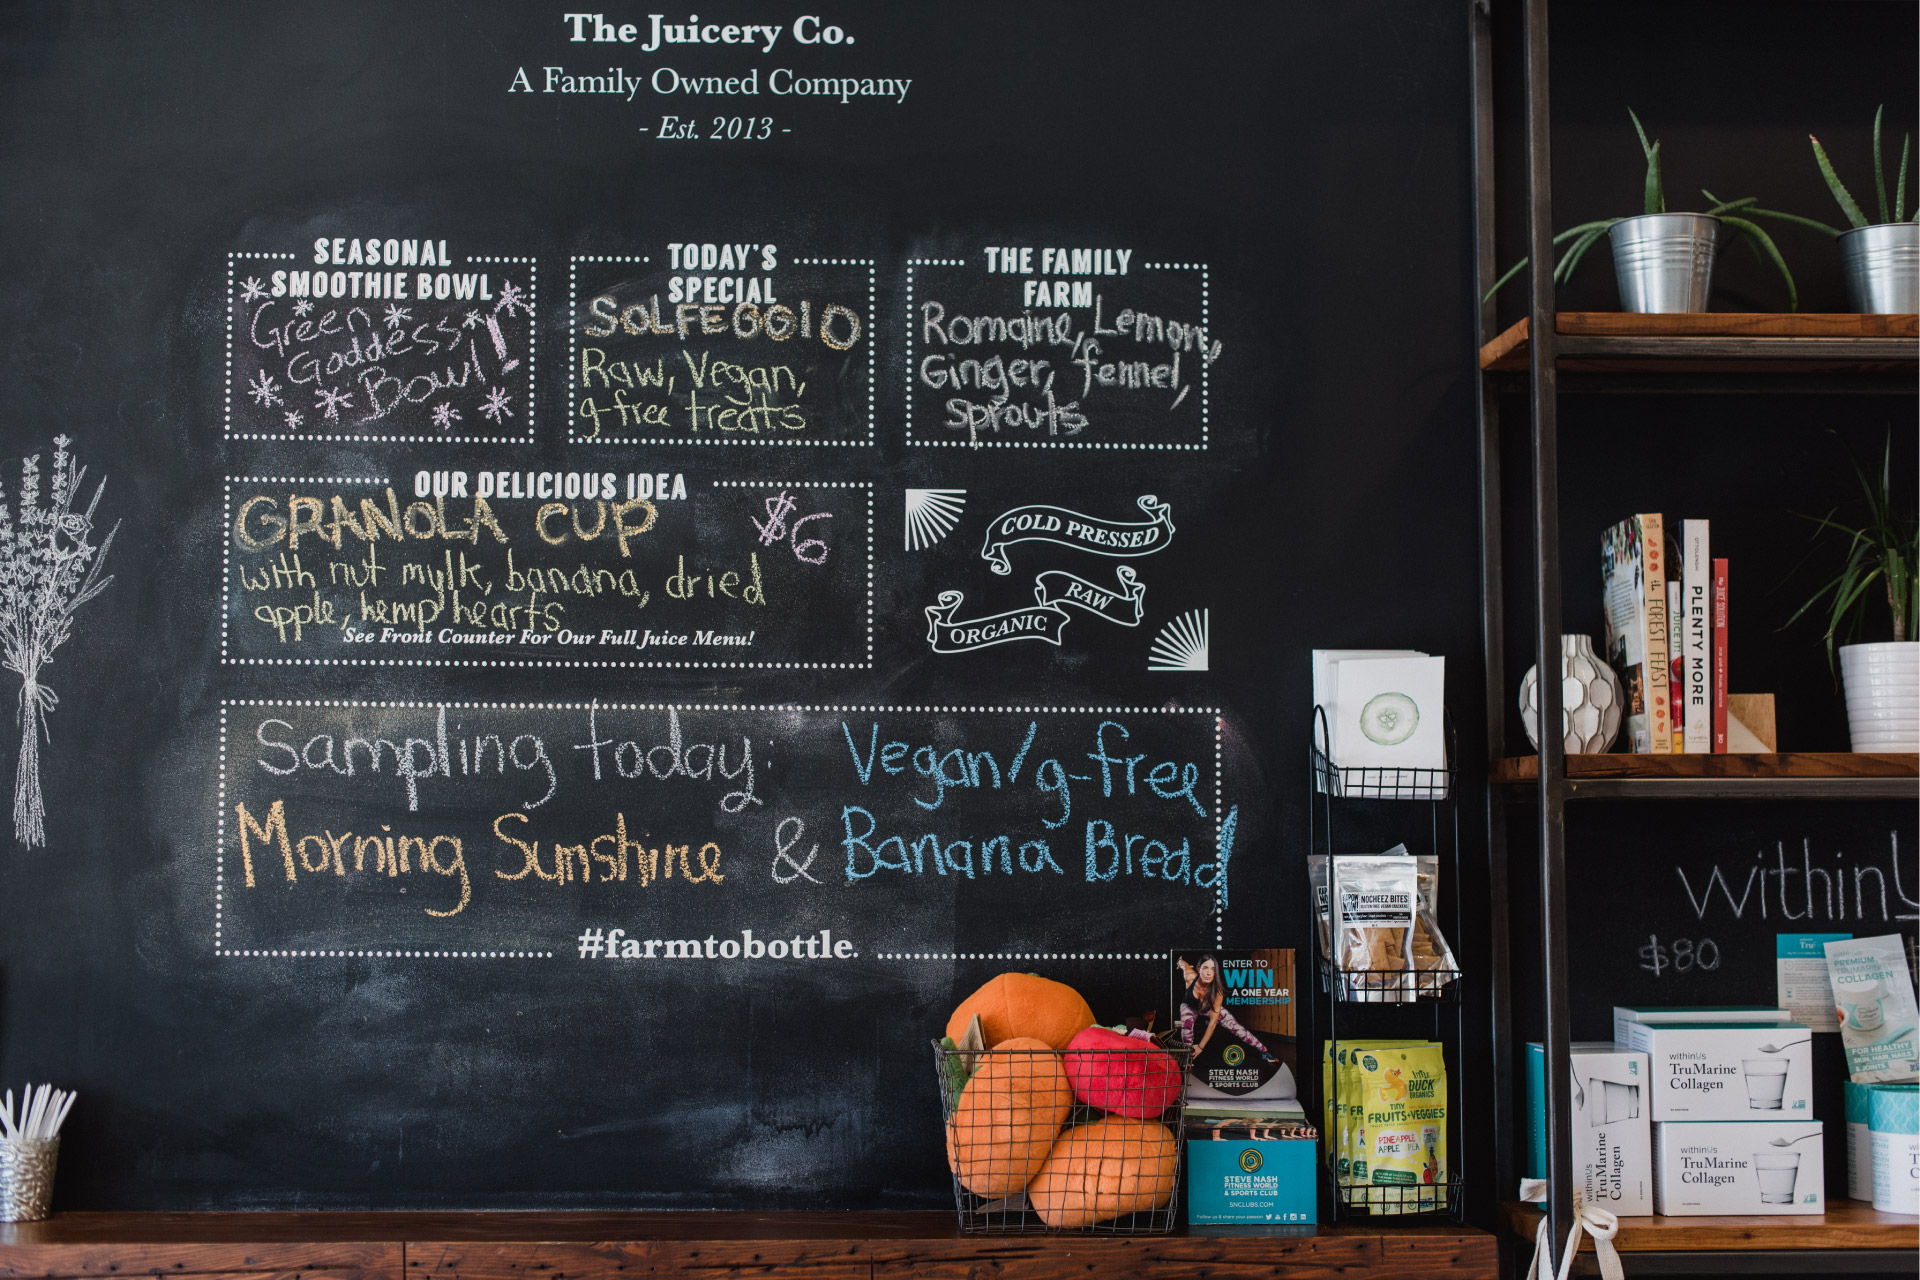 The Juicery Co.
A Family Owned Company
- Est. 2013 -
SEASONAL
SMOOTHIE BOWL
Green
Goddess
Bowl!
TODAY'S
SPECIAL
SOLFEGGIO
Raw, Vegan,
g-free treats
THE FAMILY
FARM
Romaine, Lemon,
Ginger, fennel,
sprouts
OUR DELICIOUS IDEA
GRANOLA CUP $6
with nut mylk, banana, dried
apple, hemp hearts
See Front Counter For Our Full Juice Menu!
COLD PRESSED
RAW
ORGANIC
Sampling today:
Morning Sunshine
&
Vegan/g-free
Banana Bread
#farmtobottle
ENTER TO
WIN
A ONE YEAR
MEMBERSHIP
STEVE NASH
FITNESS WORLD
& SPORTS CLUB
STEVE NASH
FITNESS WORLD
& SPORTS CLUB
SNCLUBS.COM
Follow us & share your passion
NOCHEEZ BITES
GLUTEN FREE VEGAN CRACKERS
LITTLE
DUCK
ORGANICS
TINY
FRUITS+VEGGIES
PINEAPPLE
APPLE PEA
the FOREST FEAST
JUICE IT!
OTTOLENGHI
PLENTY MORE
JUICE SOLUTION
withinU
$80
PREMIUM
TRUMARINE
COLLAGEN
FOR HEALTHY
SKIN, HAIR, NAILS
& JOINTS
withinUs
TruMarine
Collagen
withinUs
TruMarine
Collagen
withinUs
TruMarine
Collagen